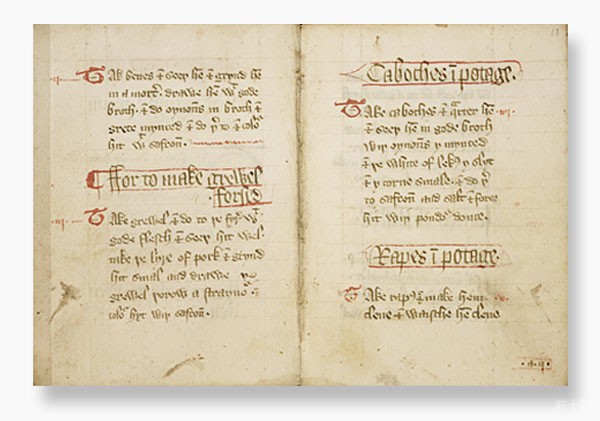 Tak benes & seeþ hē & grynd hē
in a mortʳ. drawe hē wᵗ gode
broth. & do oynoūs in broth &
grete mynced & do þʳto & coloʳ
hit wᵗ safron.
ffor to make grewel
forsed
Take grewel & do to þe fyr wᵗ
gode flesch & seeþ hit wel
take þe lyre of pork & grynd
hit smal and drawe þe
grewel þorow a straynoʳ &
coloʳ hyt wiþ safron.
Caboches ī potage.
Take caboches & qʳter hē
& seeþ hem in gode broth
wiþ oynoūs y mynced
& þe white of lekꝭ y slyt
& y corue smale. & do þʳ
to safron and salt & force
hit wiþ poudʳ douce.
Rapes ī potage.
Take rapꝰ & make hem
clene & waische hē clene